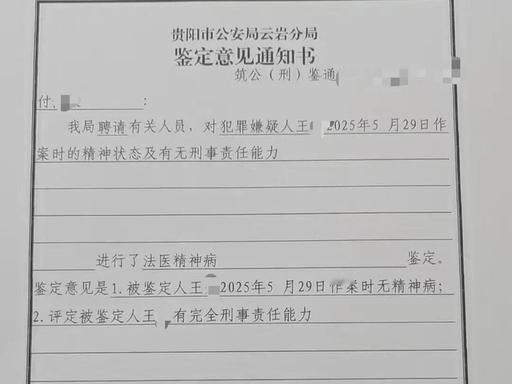 贵阳市公安局云岩分局
鉴定意见通知书
筑公（刑）鉴通
付
：
我局聘请有关人员，对犯罪嫌疑人王 2025年5 月29日作
案时的精神状态及有无刑事责任能力
进行了法医精神病 鉴定。
鉴定意见是1.被鉴定人王 2025年5 月29日作案时无精神病；
2.评定被鉴定人王 有完全刑事责任能力